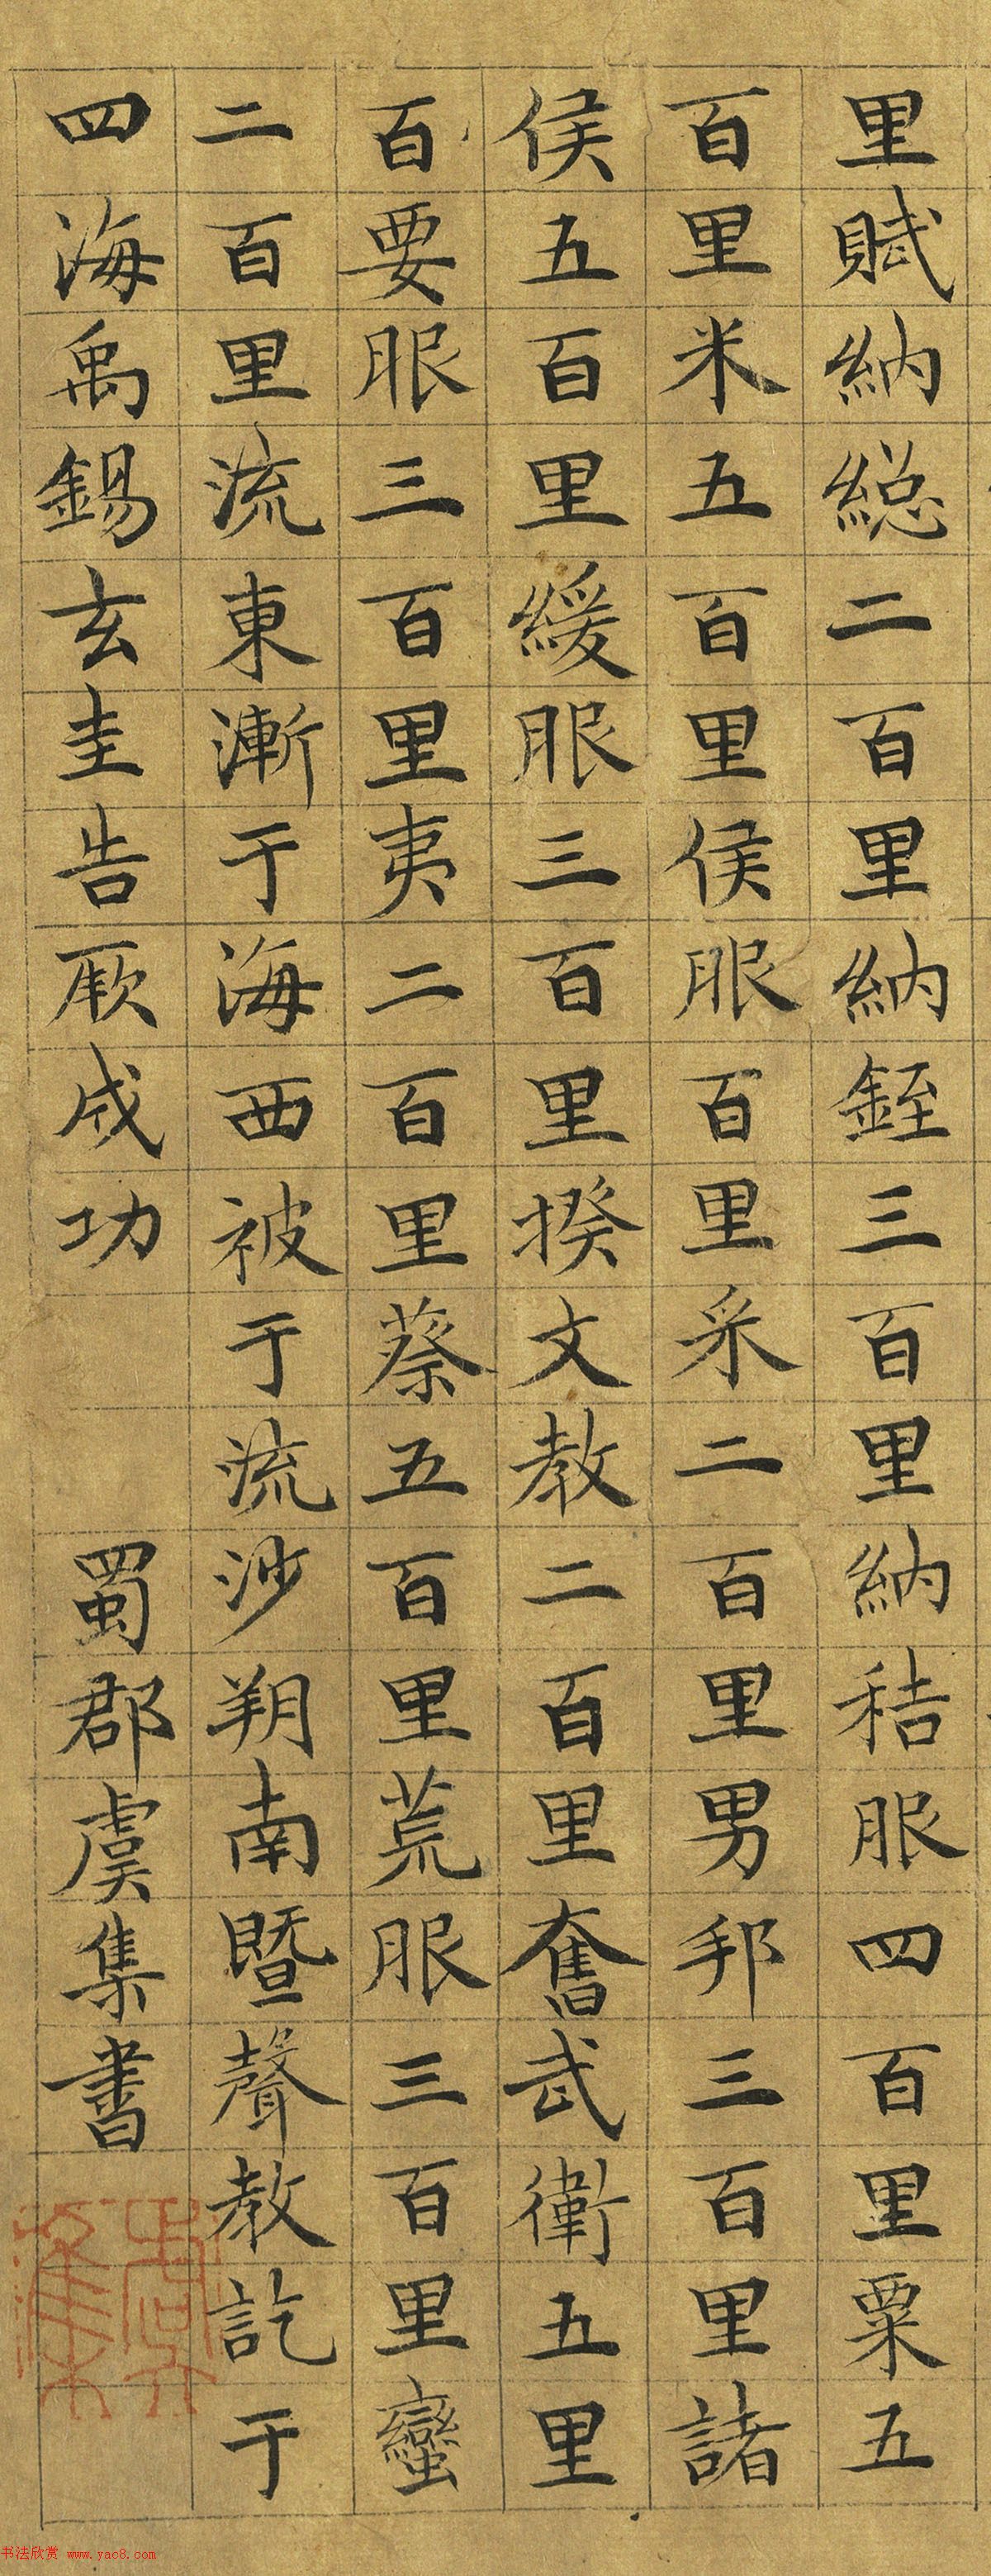 里賦納緫二百里納銍三百里納秸服四百里粟五
百里米五百里侯服百里采二百里男邦三百里諸
侯五百里綏服三百里揆文教二百里奮武衛五里
百要服三百里夷二百里蔡五百里荒服三百里蠻
二百里流東漸于海西被于流沙朔南暨聲教訖于
四海禹錫玄圭告厥成功 蜀郡虞集書
书法欣赏 www.yac8.com